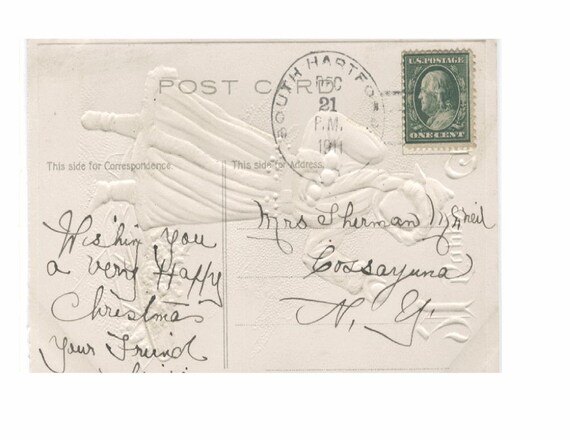 POST CARD
SOUTH HARTFO
DEC
21
P.M.
1911
U.S. POSTAGE
ONE CENT
This side for Correspondence.
This side for Address.
Wishing you
a very Happy
Christmas
Your Friend
Mrs Sherman McNeil
Cossayuna
N. Y.